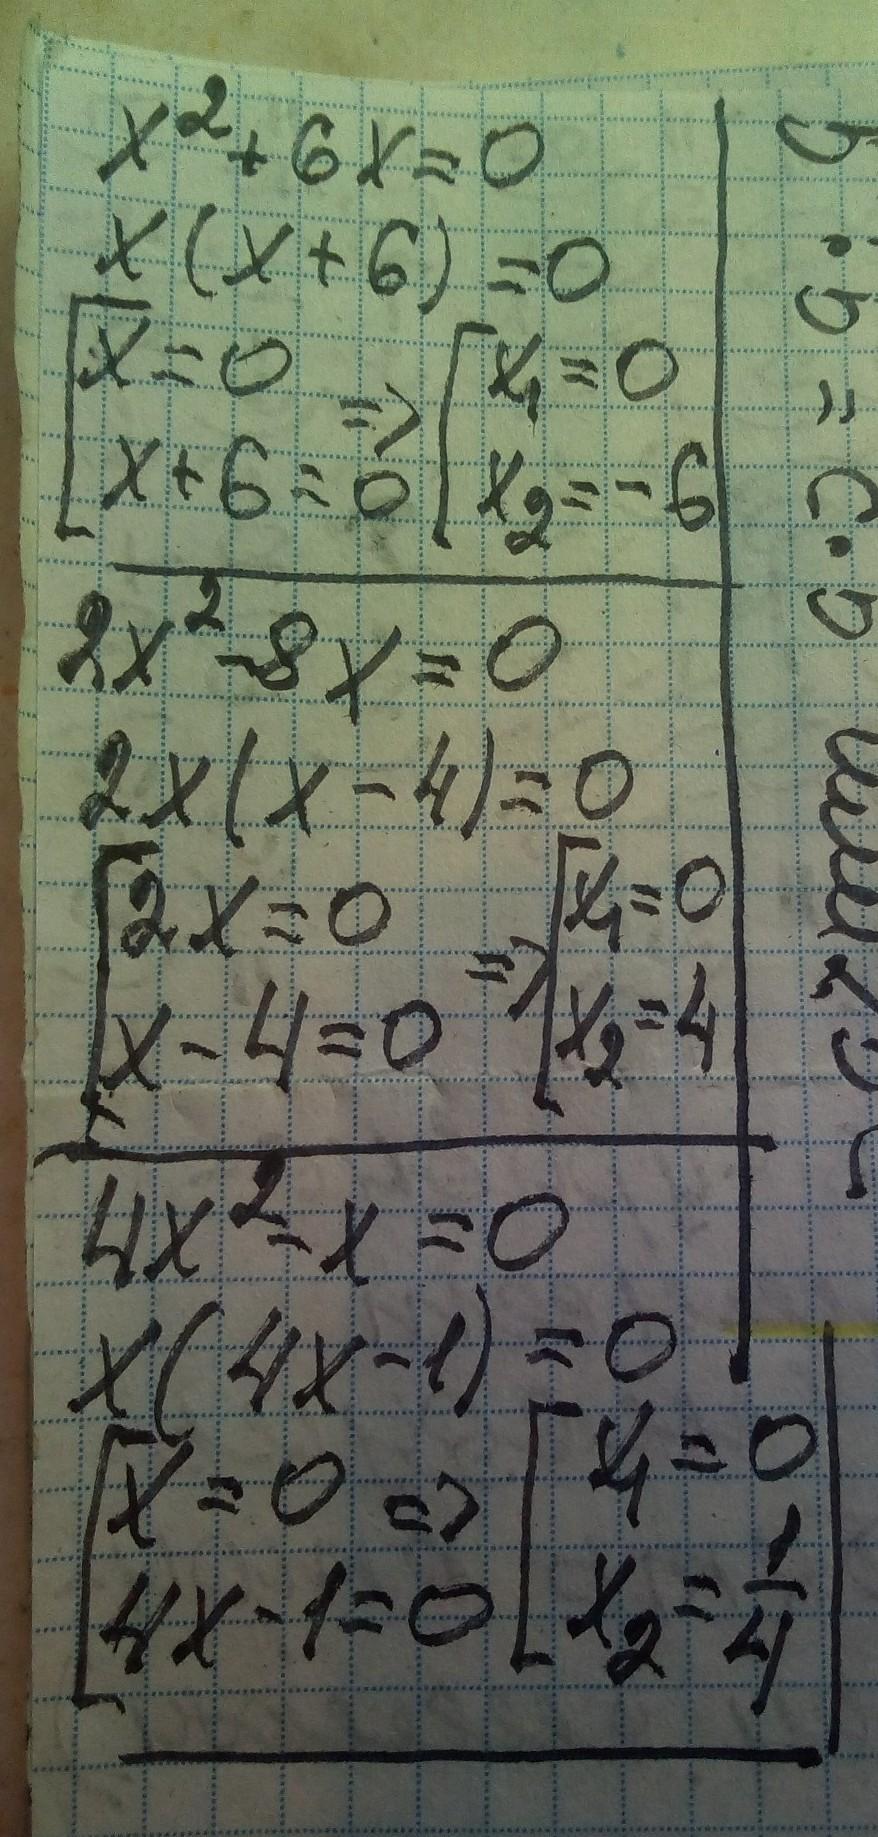 x² + 6x = 0
x (x + 6) = 0
[x = 0
x + 6 = 0 => [x₁ = 0
x₂ = -6
2x² - 8x = 0
2x (x - 4) = 0
[2x = 0
x - 4 = 0 => [x₁ = 0
x₂ = 4
4x² - x = 0
x (4x - 1) = 0
[x = 0
4x - 1 = 0 => [x₁ = 0
x₂ = 1/4